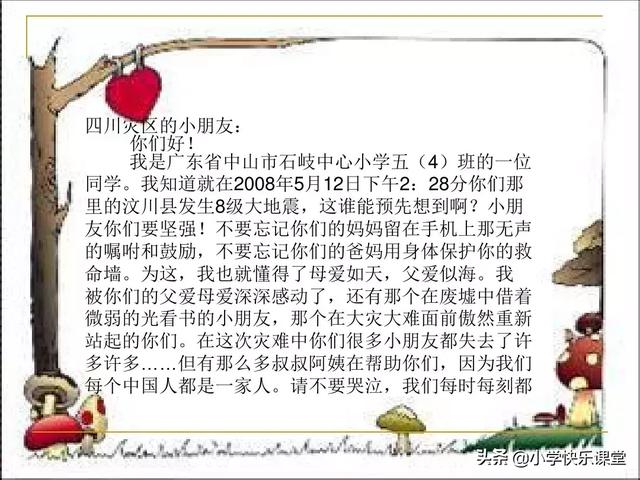 四川灾区的小朋友：
你们好！
我是广东省中山市石岐中心小学五（4）班的一位
同学。我知道就在2008年5月12日下午2：28分你们那
里的汶川县发生8级大地震，这谁能预先想到啊？小朋
友你们要坚强！不要忘记你们的妈妈留在手机上那无声
的嘱咐和鼓励，不要忘记你们的爸妈用身体保护你的救
命墙。为这，我也就懂得了母爱如天，父爱似海。我
被你们的父爱母爱深深感动了，还有那个在废墟中借着
微弱的光看书的小朋友，那个在大灾大难面前傲然重新
站起的你们。在这次灾难中你们很多小朋友都失去了许
多许多……但有那么多叔叔阿姨在帮助你们，因为我们
每个中国人都是一家人。请不要哭泣，我们每时每刻都
头条@小学快乐课堂